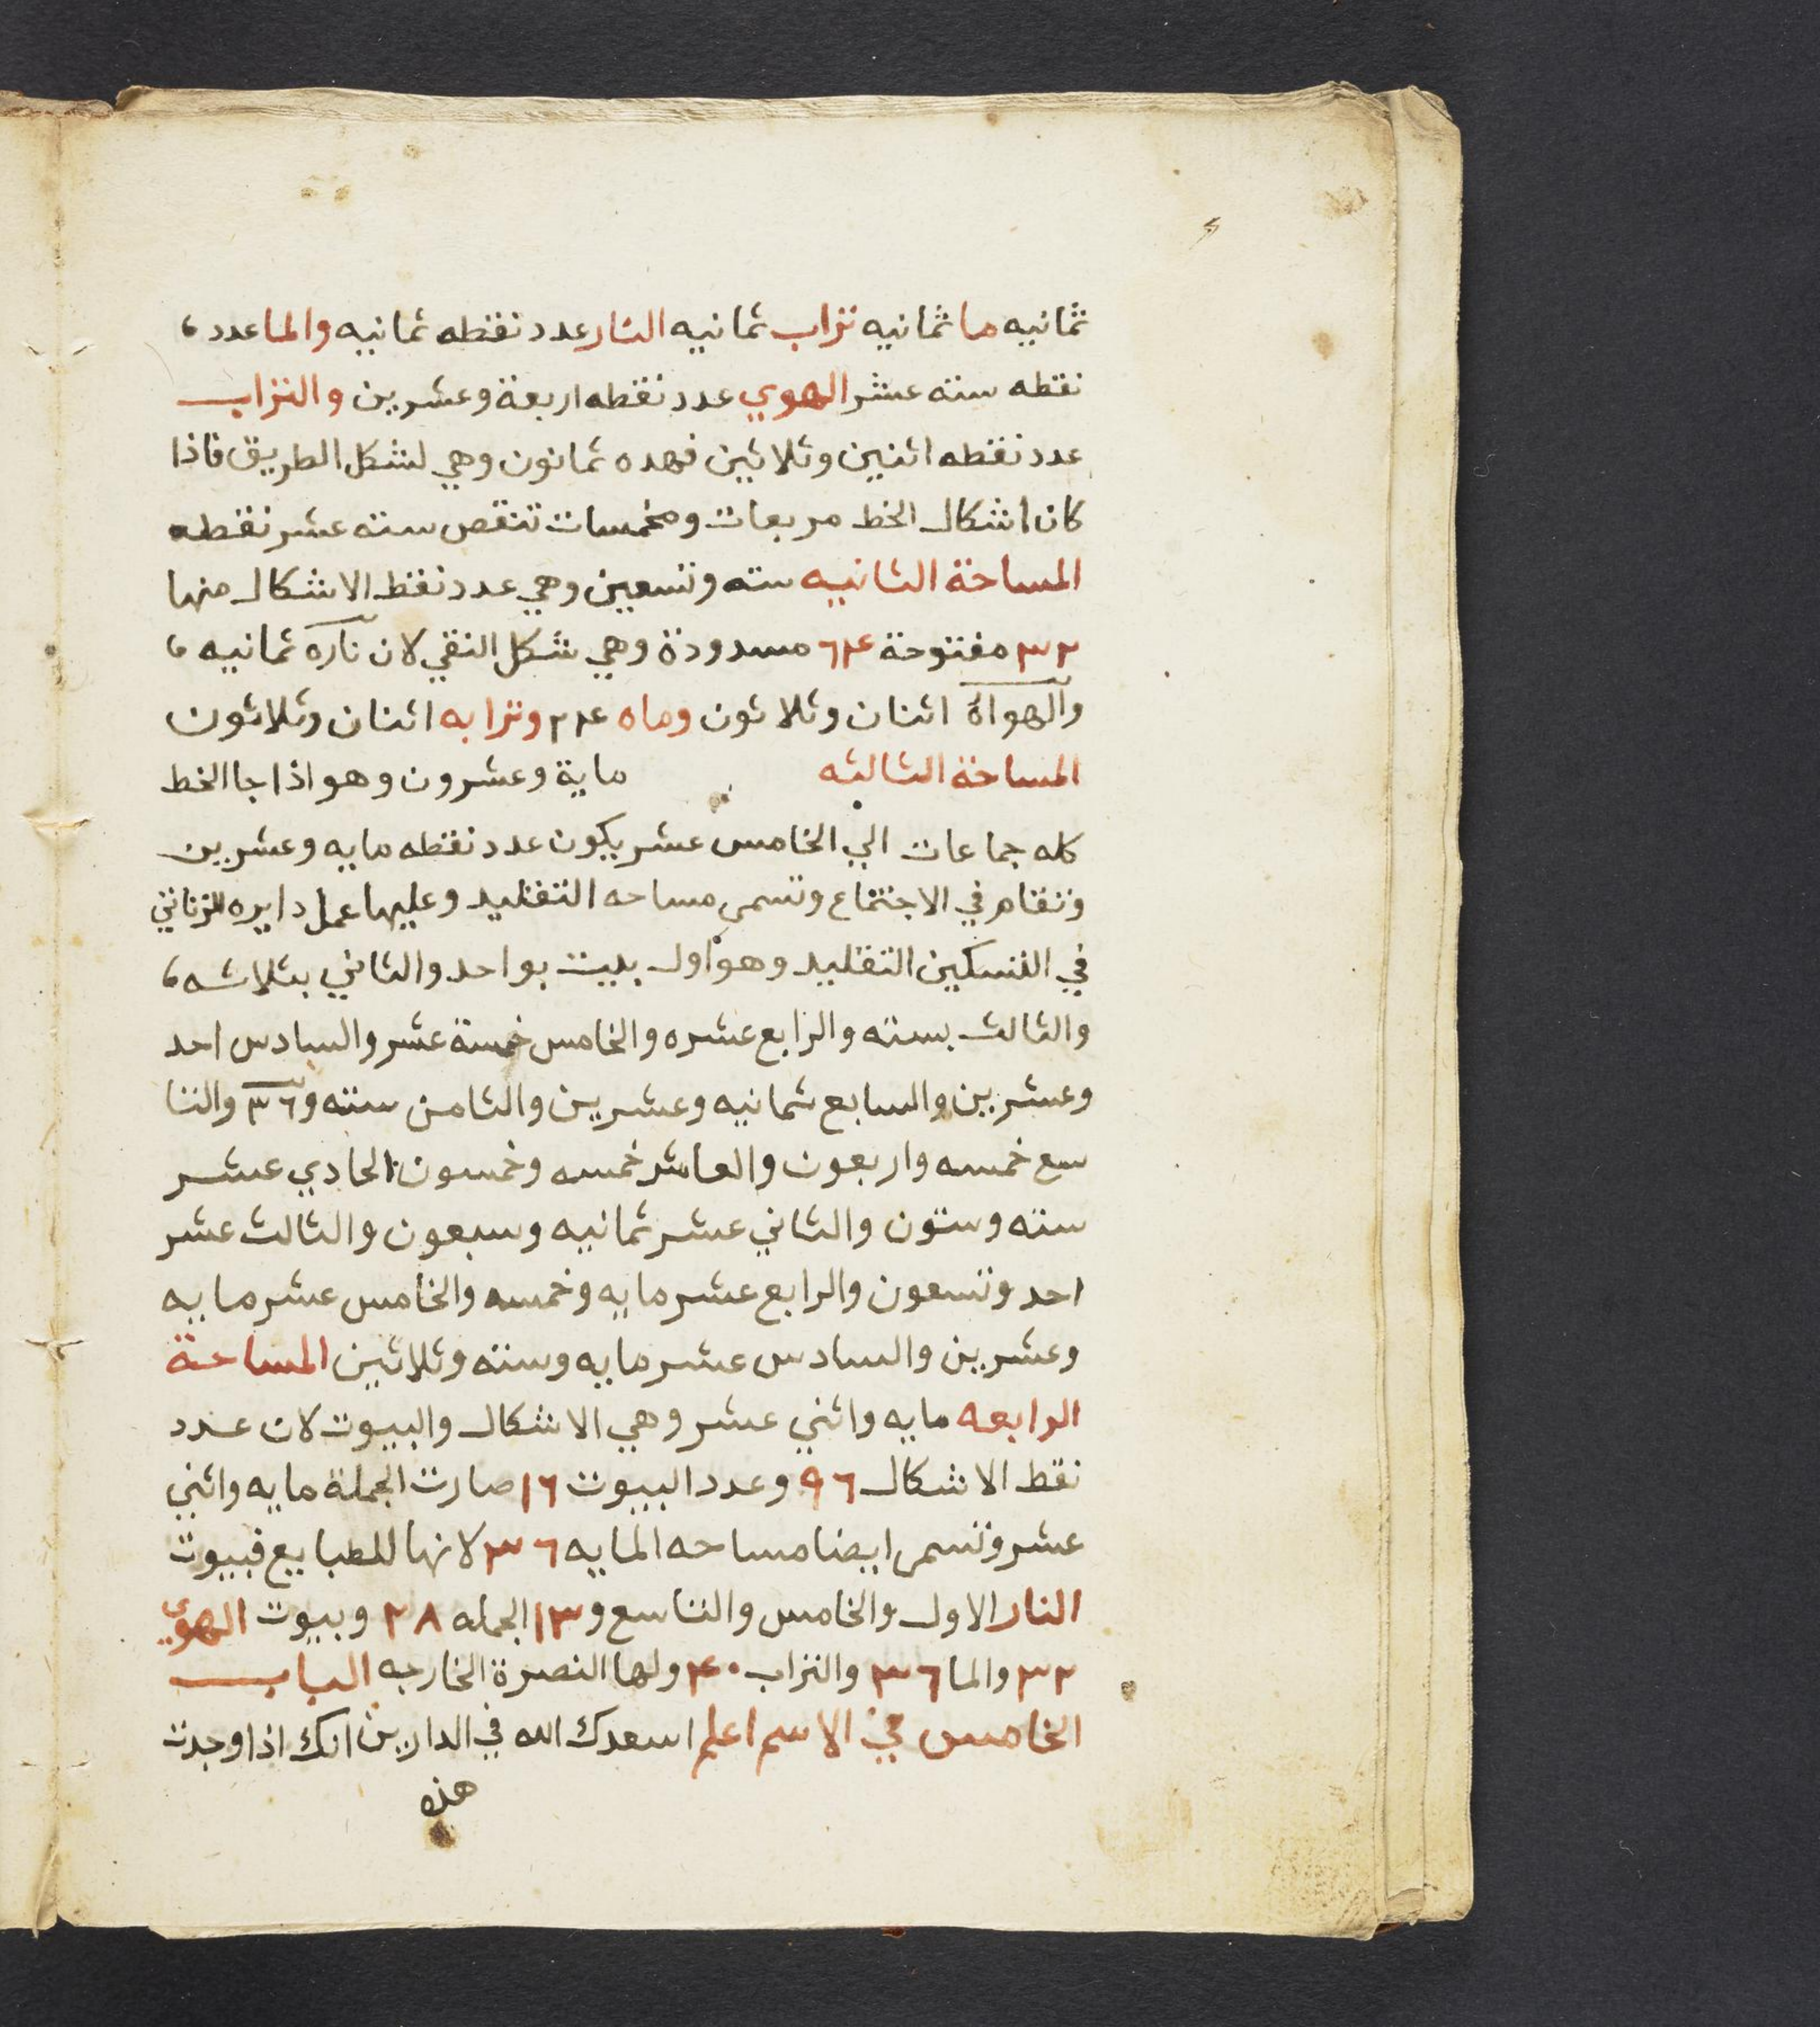 ثمانيه ما ثمانيه تراب ثمانيه النار عدد نقطه ثمانيه والما عدد ،
نقطه سته عشر الهوي عدد نقطه اربعة وعشرين والتراب
عدد نقطه اثنين وثلاثين فهده ثمانون وهي لشكل الطريق فاذا
كان اشكال الخط مربعات ومخمسات تنقص سته عشر نقطه
المساحة الثانيه سته وتسعين وهي عدد نقط الاشكال منها
٣٢ مفتوحة ٦٤ مسدودة وهي شكل النقي لان ناره ثمانيه ،
والهواة اثنان وثلاثون وماه ٢٤ وترابه اثنان وثلاثون
المساحة الثالثه ماية وعشرون وهو اذا جا الخط
كله جماعات الي الخامس عشر يكون عدد نقطه مايه وعشرين
وتقام في الاجتماع وتسمى مساحه التقليد وعليها عمل دايره الزناتي
في التسكين التقليد وهو اول بيت بواحد والثاني بثلاثه ،
والثالث بسته والرابع عشره والخامس خمسة عشر والسادس احد
وعشرين والسابع ثمانيه وعشرين والثامن سته و٣٦ والتا
سع خمسه واربعون والعاشر خمسه وخمسون الحادي عشر
سته وستون والثاني عشر ثمانيه وسبعون والثالث عشر
احد وتسعون والرابع عشر مايه وخمسه والخامس عشر مايه
وعشرين والسادس عشر مايه وسته وثلاثين المساحة
الرابعه مايه واثني عشر وهي الاشكال والبيوت لان عدد
نقط الاشكال ٩٦ وعدد البيوت ١٦ صارت الجملة مايه واثني
عشر وتسمى ايضا مساحه المايه ٣٦ لانها للطبايع فبيوت
النار الاول والخامس والتاسع و١٣ الجمله ٢٨ وبيوت الهوي
٣٢ والما ٣٦ والتراب ٤٠ ولها النصرة الخارجه الباب
الخامس في الاسم اعلم اسعدك الله في الدارين انك اذا وجدت
هذه